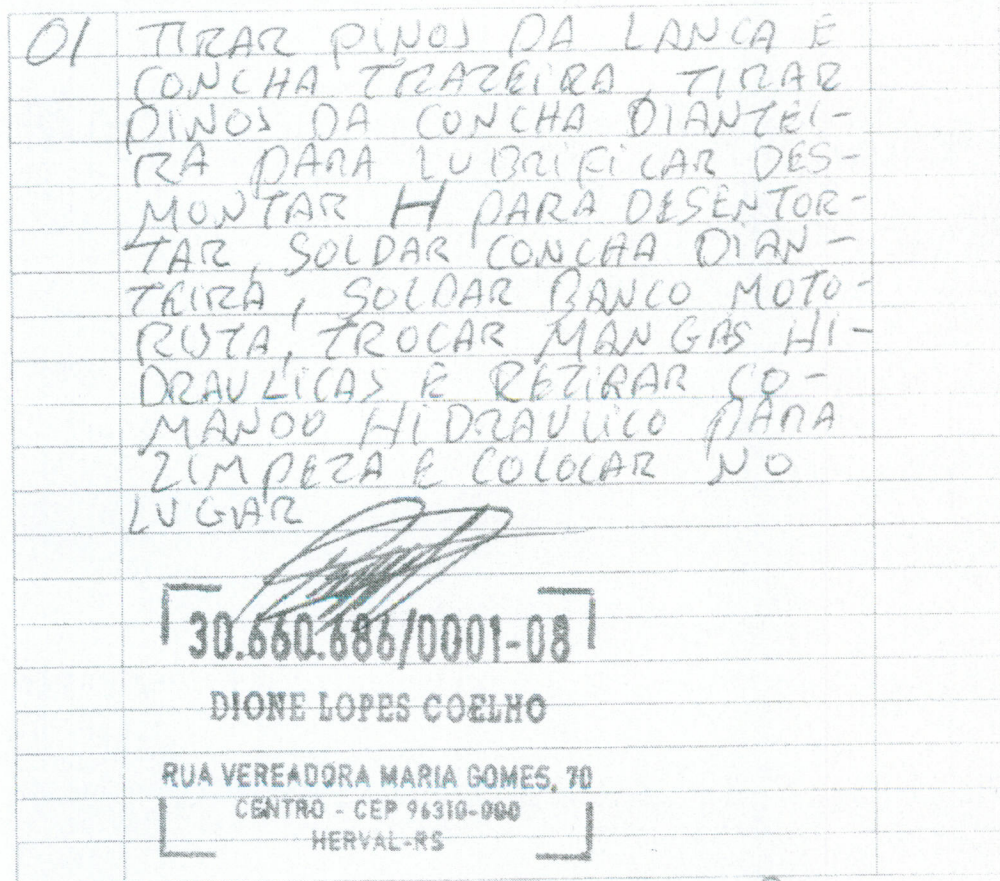 01 TIRAR PINOS DA LANCA E
CONCHA TRAZEIRA, TIRAR
PINOS DA CONCHA DIANTEI-
RA PARA LUBRIFICAR DES-
MONTAR H PARA DESENTOR-
TAR, SOLDAR CONCHA DIAN-
TEIRA, SOLDAR BANCO MOTO-
RISTA, TROCAR MANGAS HI-
DRAULICAS E RETIRAR CO-
MANDO HIDRAULICO PARA
LIMPEZA E COLOCAR NO
LUGAR
30.660.686/0001-08
DIONE LOPES COELHO
RUA VEREADORA MARIA GOMES, 70
CENTRO - CEP 96310-000
HERVAL-RS